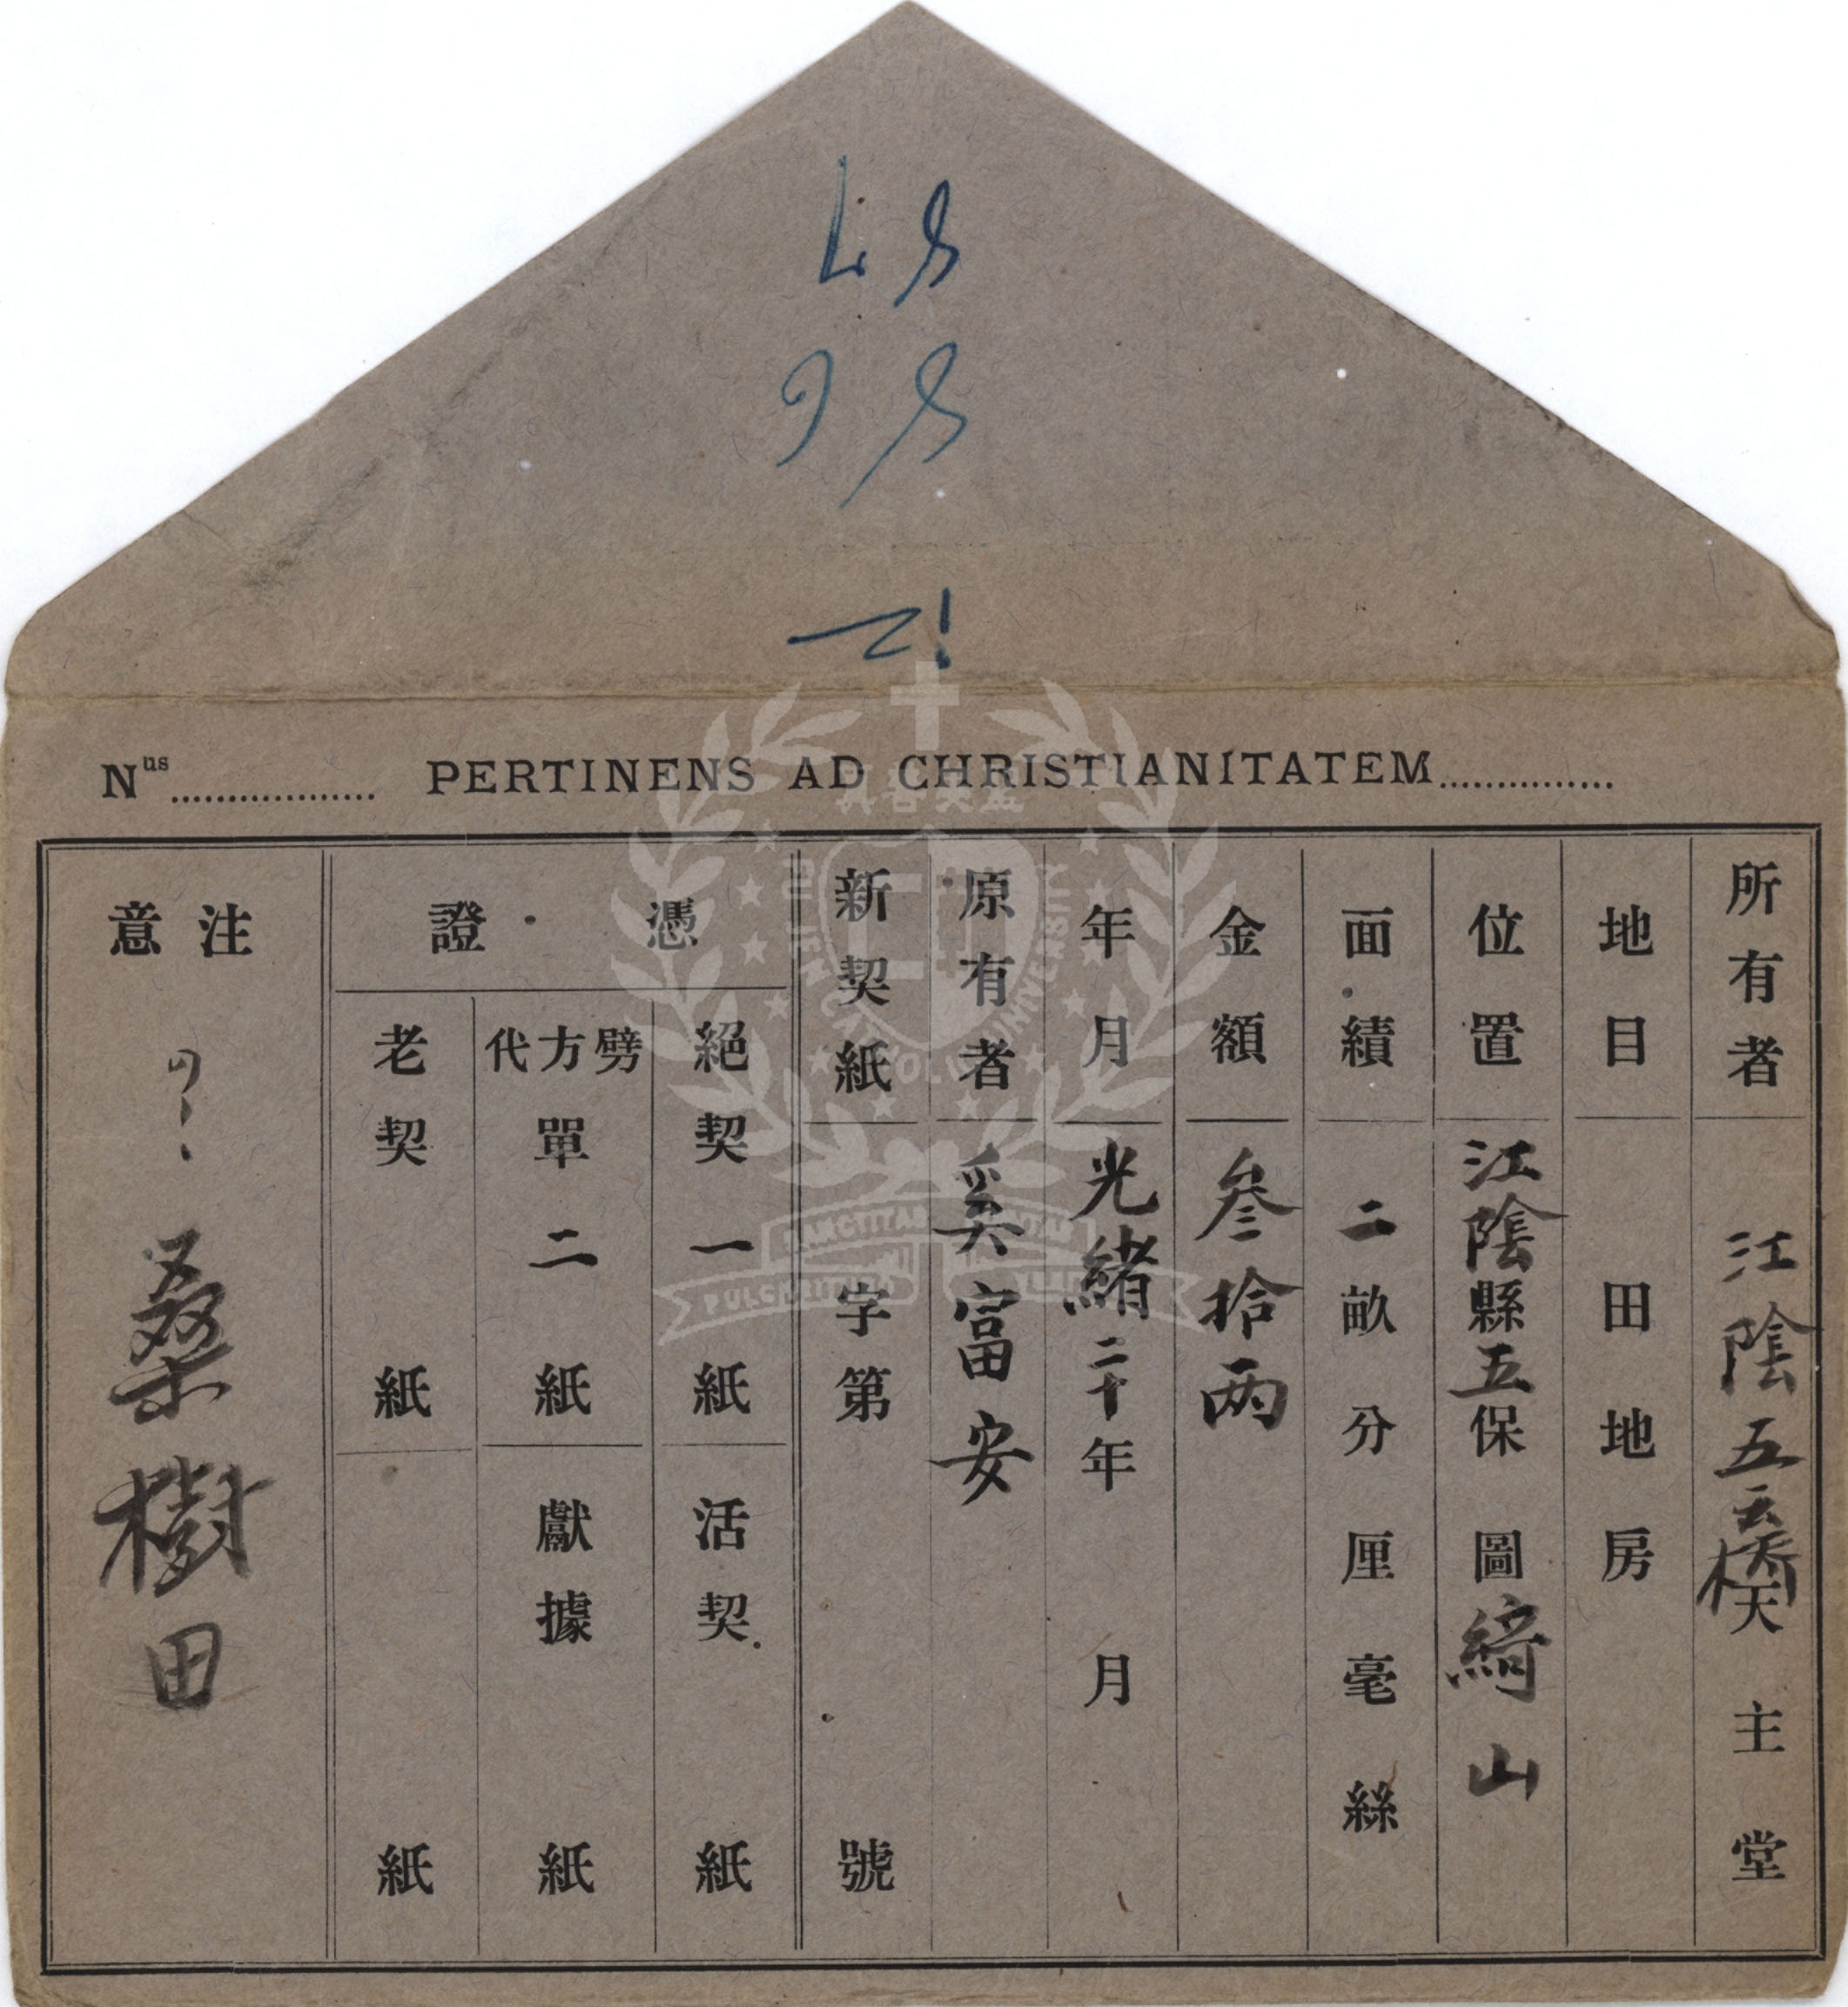 Nus PERTINENS AD CHRISTIANITATEM
所有者 江陰五云橋天主堂
地目 田地房
位置 江陰縣五保圖綺山
面績 二畝分厘毫絲
金額 叄拾两
年月 光緒二十年月
原有者 奚富安
新契紙 字第號
憑證
絕契一紙 活契紙
劈方代單二紙 獻據紙
老契紙 紙
注意
桑樹田